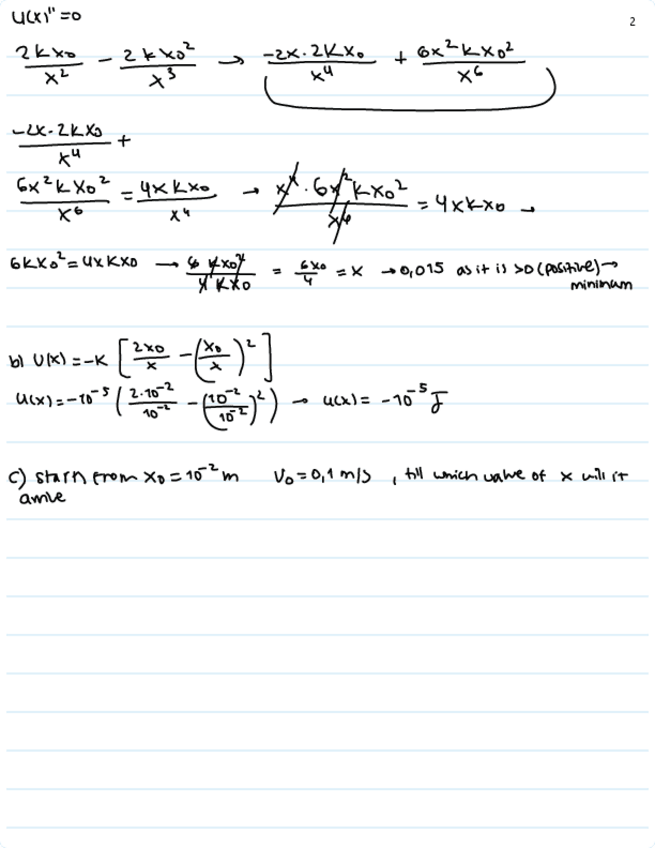 U(x)"=0
2
2kx₀/x² - 2kx₀²/x³ → -2x·2kx₀/x⁴ + 6x²kx₀²/x⁶
-2x·2kx₀/x⁴ +
6x²kx₀²/x⁶ = 4xkx₀/x⁴ → x⁴·6x²kx₀²/x⁶ = 4xkx₀ →
6kx₀²=4xkx₀ → 6kx₀²/4kx₀ = 6x₀/4 = x → 0,015 as it is >0 (positive) →
minimum
b) U(x) = -k [2x₀/x - (x₀/x)²]
U(x) = -10⁻⁵ (2·10⁻²/10⁻² - (10⁻²/10⁻²)²) → U(x) = -10⁻⁵ J
c) starts from x₀ = 10⁻² m V₀ = 0,1 m/s , till which value of x will it